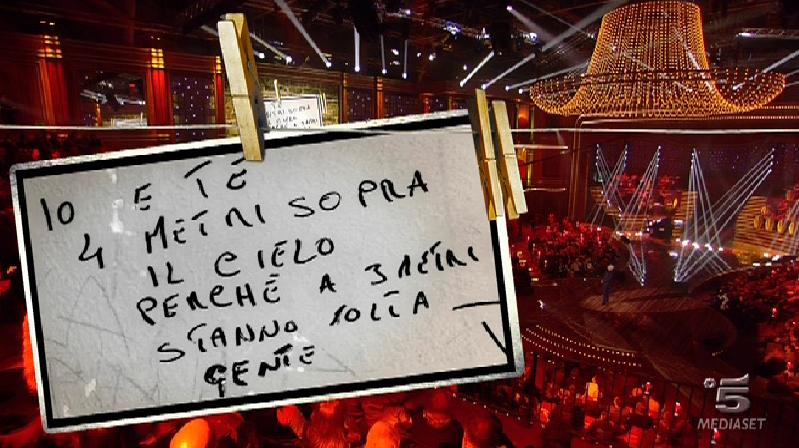 IO E TE
4 METRI SOPRA
IL CIELO
PERCHÈ A 3 METRI
STANNO
GENTE
5
MEDIASET